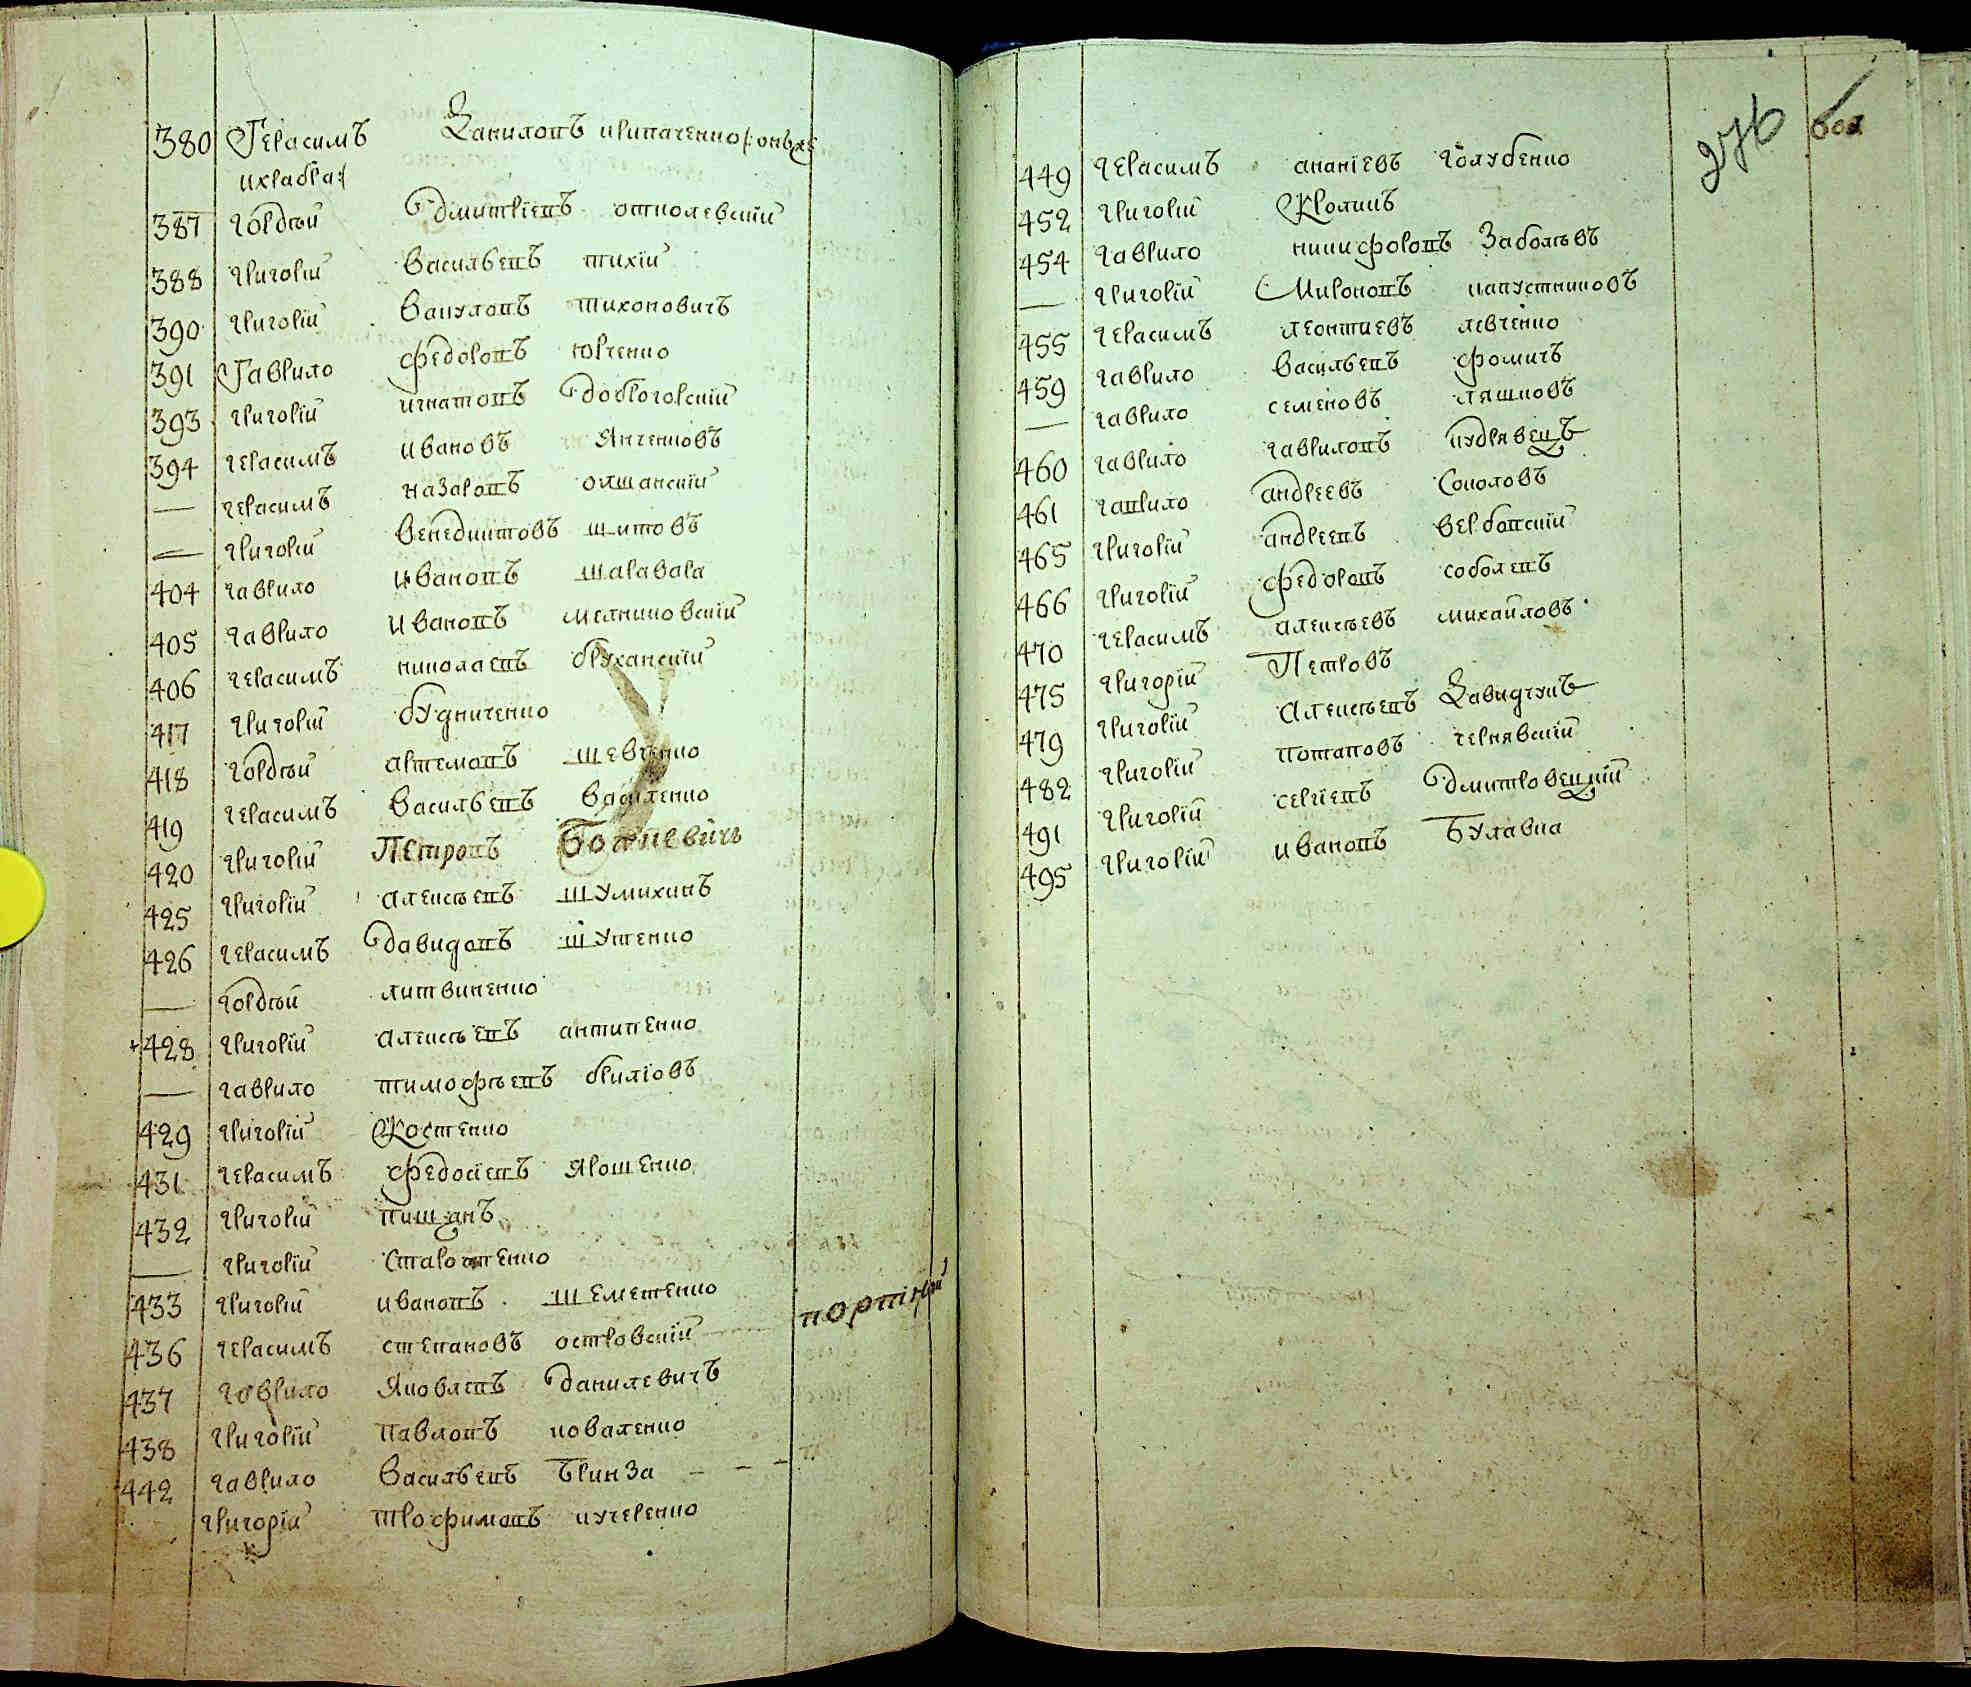 380 Герасимъ Данилопъ криваченко /: онъже
и храбра :/
387 гордѣй дмитріепъ отколевскій
388 григорій васильепъ тихій
390 григорій вакулопъ тихоновичъ
391 Гаврило федоропъ юрченко
393 григорій игнатопъ доброгорскій
394 герасимъ ивановъ янченковъ
— герасимъ назаропъ олшанскій
— григорій венедиктовъ шитовъ
404 гаврило иванопъ шаравара
405 гаврило иванопъ мелниковскій
406 герасимъ николаепъ бруханскій
417 григорій будниченко
418 гордѣй артемопъ шевченко
419 герасимъ васильепъ василенко
420 григорій Петропъ
425 григорій алексѣепъ шумихинъ
426 герасимъ давидопъ шутенко
— гордѣй литвиненко
428 григорій алексѣепъ антипенко
— гаврило тимофѣепъ бриліовъ
429 григорій Костенко
431 герасимъ федосіепъ ярошенко
432 григорій пищанъ
— григорій
433 григорій иванопъ шеметенко
436 герасимъ степановъ островскій — портній
437 гаврило яковлепъ данилевичъ
438 григорій павлопъ коваленко
442 гаврило васильепъ бринза
григорій трофимопъ кучеренко
276
449 герасимъ ананіевъ голубенко
452 григорій Кроликъ
454 гаврило никифоропъ Заболѣвъ
— григорій Миронопъ капустниковъ
455 герасимъ леонтиевъ левченко
459 гаврило васильепъ фомичъ
— гаврило семеновъ ляшковъ
460 гаврило гаврилопъ кудрявецъ
461 гаприло андреевъ Соколовъ
465 григорій андреепъ вербопскій
466 григорій федоропъ соболепъ
470 герасимъ алексѣевъ михайловъ
475 григорій Петровъ
479 григорій Алексѣепъ Давидчукъ
482 григорій потаповъ чернявскій
491 григорій сергіепъ дмитровецкій
495 григорій иванопъ Булавка